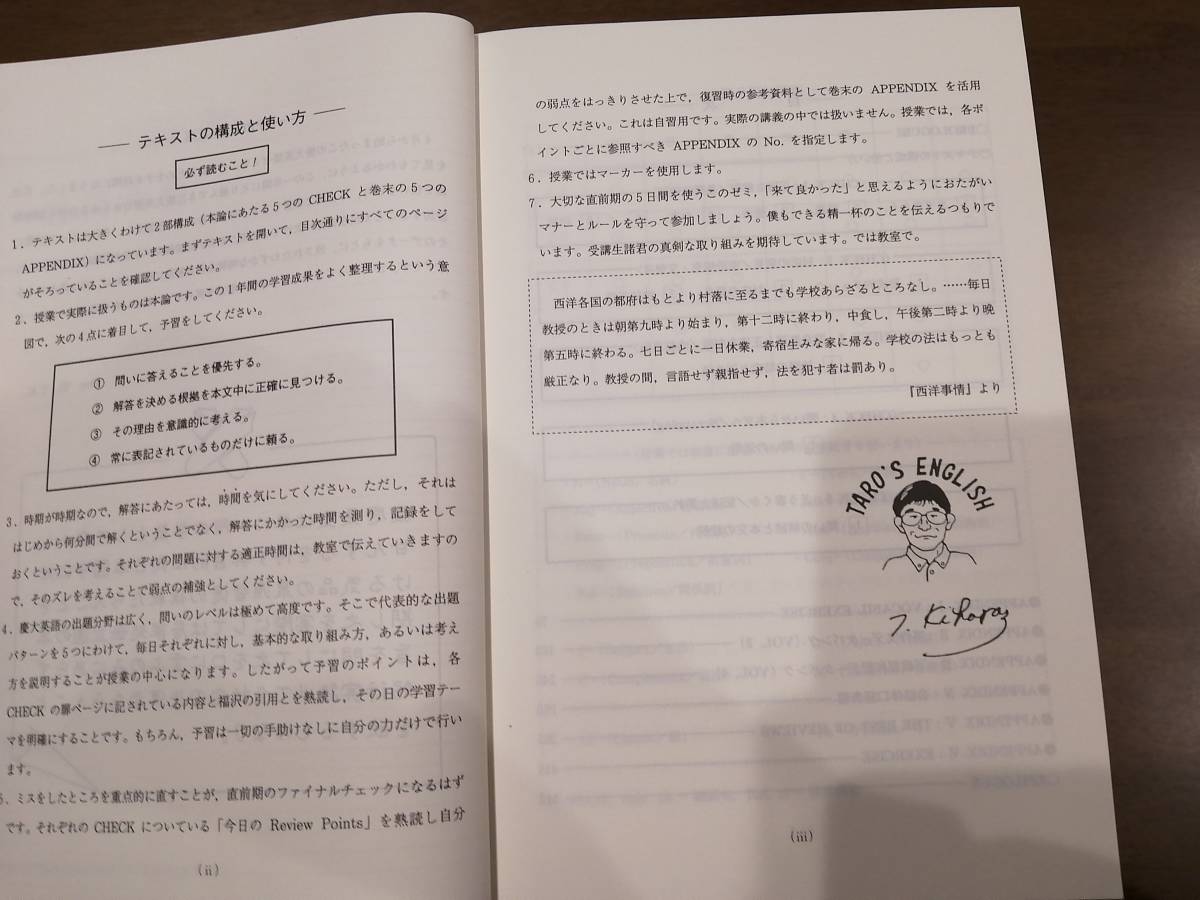 ── テキストの構成と使い方 ──
必ず読むこと！
1．テキストは大きくわけて2部構成（本論にあたる5つの CHECK と巻末の5つの
APPENDIX）になっています。まずテキストを開いて，目次通りにすべてのページ
がそろっていることを確認してください。
2．授業で実際に扱うものは本論です。この1年間の学習成果をよく整理するという意
図で，次の4点に着目して，予習をしてください。
① 問いに答えることを優先する。
② 解答を決める根拠を本文中に正確に見つける。
③ その理由を意識的に考える。
④ 常に表記されているものだけに頼る。
3．時期が時期なので，解答にあたっては，時間を気にしてください。ただし，それは
はじめから何分間で解くということでなく，解答にかかった時間を測り，記録をして
おくということです。それぞれの問題に対する適正時間は，教室で伝えていきますの
で，そのズレを考えることで弱点の補強としてください。
4．慶大英語の出題分野は広く，問いのレベルは極めて高度です。そこで代表的な出題
パターンを5つにわけて，毎日それぞれに対し，基本的な取り組み方，あるいは考え
方を説明することが授業の中心になります。したがって予習のポイントは，各
CHECK の扉ページに記されている内容と福沢の引用とを熟読し，その日の学習テー
マを明確にすることです。もちろん，予習は一切の手助けなしに自分の力だけで行い
ます。
5．ミスをしたところを重点的に直すことが，直前期のファイナルチェックになるはず
です。それぞれの CHECK についている「今日の Review Points」を熟読し自分
（ii）
の弱点をはっきりさせた上で，復習時の参考資料として巻末の APPENDIX を活用
してください。これは自習用です。実際の講義の中では扱いません。授業では，各ポ
イントごとに参照すべき APPENDIX の No. を指定します。
6．授業ではマーカーを使用します。
7．大切な直前期の5日間を使うこのゼミ，「来て良かった」と思えるようにおたがい
マナーとルールを守って参加しましょう。僕もできる精一杯のことを伝えるつもりで
います。受講生諸君の真剣な取り組みを期待しています。では教室で。
西洋各国の都府はもとより村落に至るまでも学校あらざるところなし。……毎日
教授のときは朝第九時より始まり，第十二時に終わり，中食し，午後第二時より晩
第五時に終わる。七日ごとに一日休業，寄宿生みな家に帰る。学校の法はもっとも
厳正なり。教授の間，言語せず親指せず，法を犯す者は罰あり。
『西洋事情』より
TARO'S ENGLISH
T. Kihara
（iii）